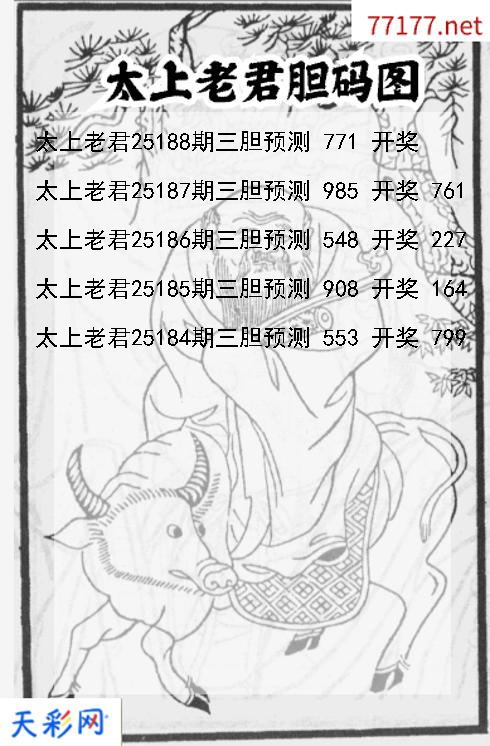 77177.net
太上老君胆码图
太上老君25188期三胆预测 771 开奖
太上老君25187期三胆预测 985 开奖 761
太上老君25186期三胆预测 548 开奖 227
太上老君25185期三胆预测 908 开奖 164
太上老君25184期三胆预测 553 开奖 799
天彩网